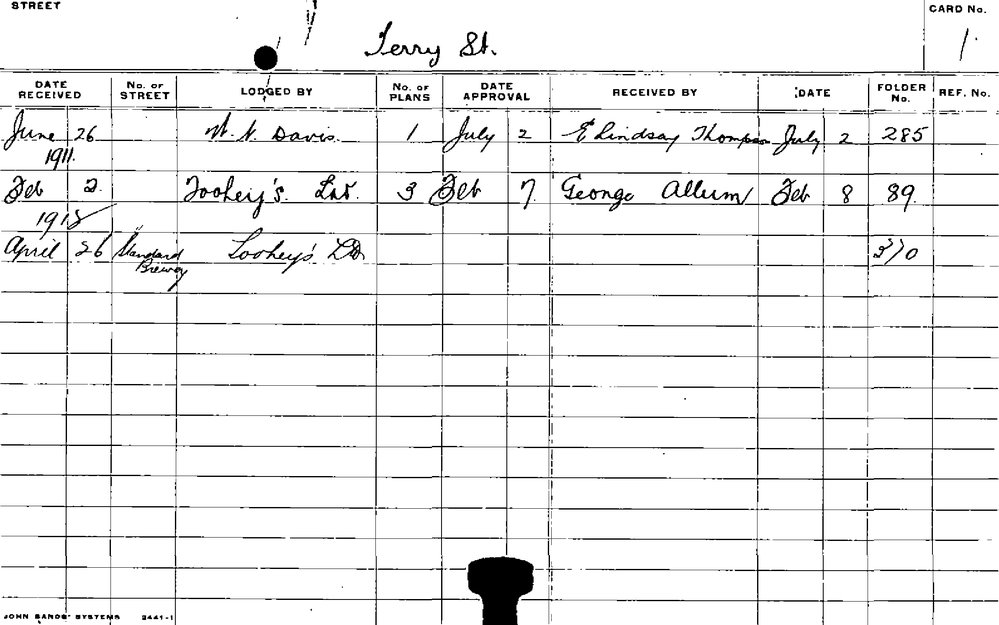 STREET
CARD No.
Terry St.
1
DATE RECEIVED No. OF STREET LODGED BY No. OF PLANS DATE APPROVAL RECEIVED BY DATE FOLDER No. REF. No.
June 26 W. N. Davis. 1 July 2 E Lindsay Thompson July 2 285
1911.
Feb 2. Toohey's. Ltd. 3 Feb 7. George Allum Feb 8 89.
1918
April 26 Standard Brewery Toohey's Ltd 370
JOHN SANDS' SYSTEMS 2441-1